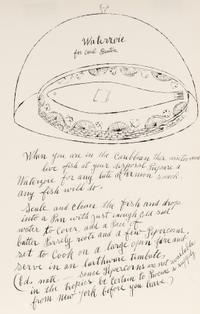 Waterzoie
for Cecil Beaton
When you are in the Caribbean this winter and
live fish at your disposal. Prepare a
Waterzoie for any late afternoon snack
any fish will do.
Scale and cleane the fish and drop
into a Pan with just enough old sea
water to cover, add a Piece of
butter Parsely roots and a few Pepercorns,
set to Cook on a large open fire and
serve in an earthware timbale,
(Ed. note — some Pepercorns are not available
in the tropics be certain to Procure a supply
from New York before you leave)